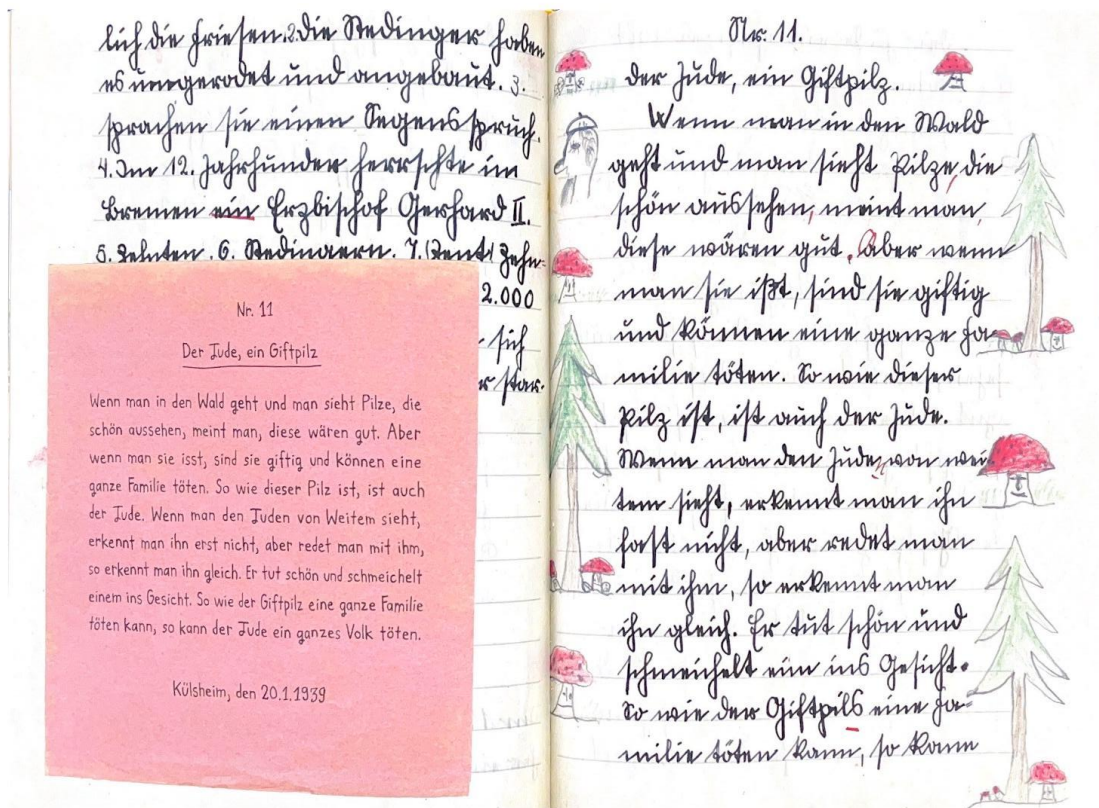 lich die Friesen. 2. Die Stedinger haben
es umgerodet und angebaut. 3.
sprachen sie einen Segensspruch.
4. Im 12. Jahrhunder herrschte in
Bremen ein Erzbischof Gerhard II.
5. Zehnten. 6. Stedingern. 7. Zehn-
2.000
sich
star-
Nr. 11
Der Jude, ein Giftpilz
Wenn man in den Wald geht und man sieht Pilze, die
schön aussehen, meint man, diese wären gut. Aber
wenn man sie isst, sind sie giftig und können eine
ganze Familie töten. So wie dieser Pilz ist, ist auch
der Jude. Wenn man den Juden von Weitem sieht,
erkennt man ihn erst nicht, aber redet man mit ihm,
so erkennt man ihn gleich. Er tut schön und schmeichelt
einem ins Gesicht. So wie der Giftpilz eine ganze Familie
töten kann, so kann der Jude ein ganzes Volk töten.
Külsheim, den 20.1.1939
Nr. 11.
der Jude, ein Giftpilz.
Wenn man in den Wald
geht und man sieht Pilze, die
schön aussehen, meint man,
diese wären gut. Aber wenn
man sie ißt, sind sie giftig
und können eine ganze Fa-
milie töten. So wie dieser
Pilz ist, ist auch der Jude.
Wenn man den Juden von wei-
tem sieht, erkennt man ihn
fast nicht, aber redet man
mit ihm, so erkennt man
ihn gleich. Er tut schön und
schmeichelt eim ins Gesicht.
So wie der Giftpils eine Fa-
milie töten kann, so kann